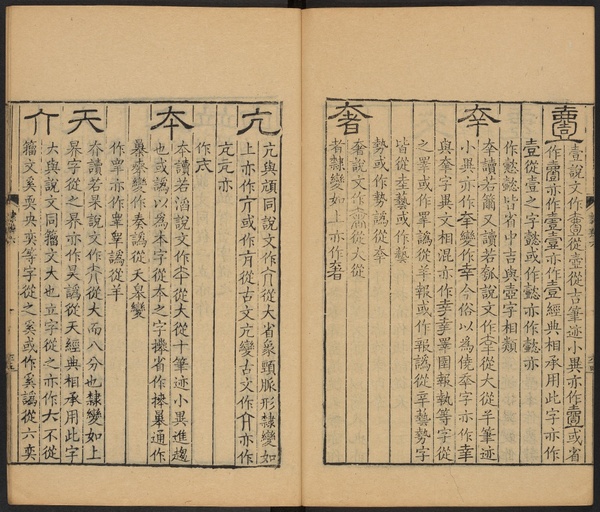 壹
壹說文作壺從壺從吉筆迹小異亦作壺或省
作壺亦作壹壹亦作壹經典相承用此字亦作
壹從壹之字懿或作懿亦作懿亦
作懿懿皆省中吉與壺字相類
㚔
㚔讀若籋又讀若瓠說文作㚔從大從羊筆迹
小異亦作㚔變作幸今俗以為僥㚔字亦作幸
與㚔字異文相混亦作幸幸睪圉報執等字從
之睪或作睪譌從羊報或作報譌從幸藝勢字
皆從坴蓺或作藝
勢或作勢譌從㚔
奢
奢說文作奢從大從
者隸變如上亦作奢
亢
亢與頏同說文作亢從大省象頸脈形隸變如
上亦作亢或作亢從古文亢變古文作亣亦作
亢亢亦
作亢
夲
夲讀若滔說文作夲從大從十筆迹小異進趨
也或譌以為本字從本之字㯱省作㯱暴通作
暴奏變作奏譌從天皋變
作睾亦作睾睾譌從羊
天
夰讀若杲說文作夰從大而八分也隸變如上
界字從之界亦作昊譌從天經典相承用此字
亣
大與說文同籀文大也立字從之亦作大不從
籀文奚耎央奕等字從之奚或作奚譌從六奕